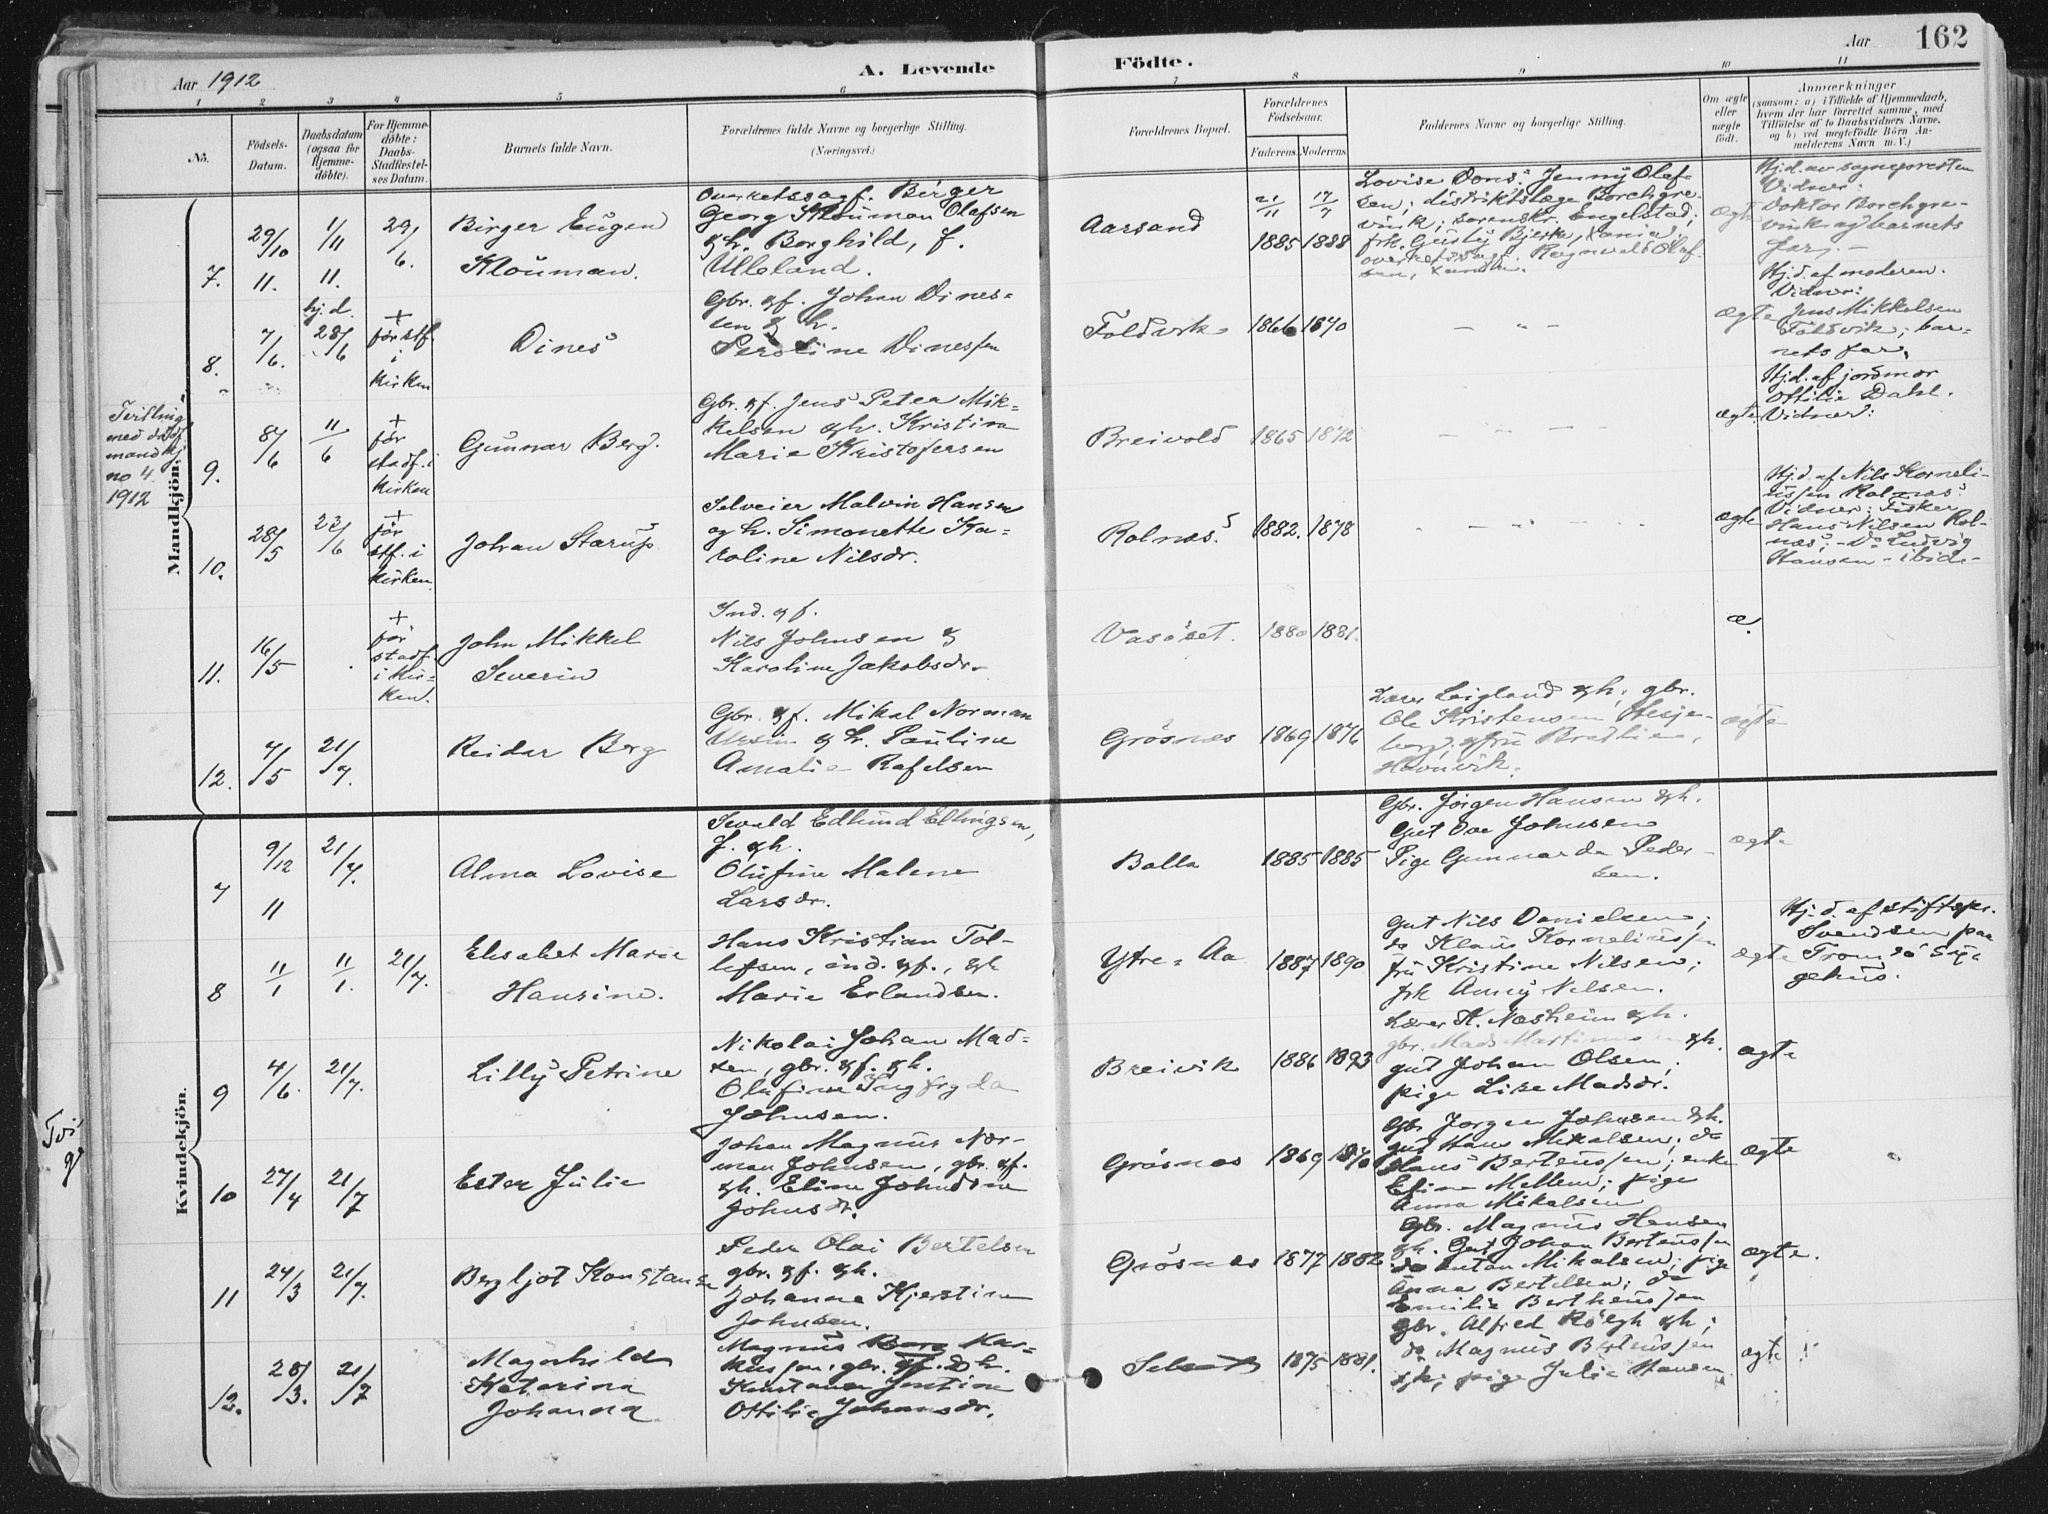 Aar 1912
A. Levende
Födte.
Aar
162
1 2 3 4 5 6 7 8 9 10 11
No.
Födsels-
Datum.
Daabsdatum
(ogsaa for
Hjemme-
døbte).
For Hjemme-
døbte:
Daabs-
Stadfæstel-
ses Datum.
Barnets fulde Navn.
Forældrenes fulde Navne og borgerlige Stilling.
(Næringsvei.)
Forældrenes Bopæl.
Forældrenes
Födselsaar.
Faderens. Moderens.
Faddernes Navne og borgerlige Stilling.
Om ægte
eller
uægte
født.
Anmærkninger
(saasom: a) i Tilfælde af Hjemmedaab,
hvem der har forrettet samme, med
Tilföielse af to Daabsvidners Navne,
og b) ved uegtefödte Börn An-
melderens Navn m. V.)
Mandkjön.
7.
29/10
11.
1/11
11.
29/6.
Birger Eugen
Klouman.
Overretssagf. Birger
Georg Klouman Olafsen
& h. Borghild, f.
Ulleland.
Aarsand
21/11 1885
17/7 1888
Lovise Dons; Jenny Olaf-
sen; distriktslæge Borchgre-
vink; sorenskr. Engelstad;
frk.
Ragnvald Olaf-
sen,
ægte
Hj.d. av sognepresten
Vidner:
Doktor Borchgre-
vink og barnets
far. -
8.
7/6.
hj.d.
28/6
+
før stf.
i
kirken
Dines
Gbr. & f. Johan Dines-
sen & h.
Perline Dinessen
Foldvik
1866 1870
- " -
ægte
Hj.d. af moderen.
Vidner:
Jens Mikkelsen
Foldvik; bar-
nets far.
Tvilling
med
mandkj
no 4
1912
9.
8/6
11/6
+
før
stadf. i
kirken
Gunnar Berg.
Gbr. & f. Jens Peter Mik-
kelsen & h. Kristina
Marie Kristofersen
Breivold
1865 1872
- - - -
ægte
Hj.d. af jordmor
Ottilie Dahl.
Vidner:
10.
28/5
23/6
+
før
stf. i
kirken
Johan Starup
Selveier Malvin Hansen
og h. Simonette Ka-
roline Nilsdr.
Rolnæs.
1882. 1878
- - - -
ægte
Hj.d. af Nils Korneli-
ussen Rolnæs.
Vidner: Fisker
Hans Nilsen Rol-
næs; - Do Ludvig
Hansen - ibid. -
11.
16/5
+
før
stadf.
i kir-
ken.
John Mikkel
Severin
Ind. & f.
Nils Johnsen &
Karoline Jakobsdr.
Vasöset.
1880 1881.
æ.
12.
7/5
21/7.
Reidar Berg
Gbr. & f. Mikal Norman
& h. Pauline
Amalie Rafelsen
Grösnes
1869 1876
Lærer Leigland & h., gbr.
Ole Kristensen Hesje-
berg, & fru Brathlie,
Havnvik.
ægte
Kvindekjön.
7
9/12
11
21/7.
Alma Lovise
Sevald Edlund Ellingsen,
f. & h.
Olufine Malene
Larsdr.
Balla
1885 1885
Gbr. Jørgen Hansen & h.
Gut Ove Johnsen
Pige Gunnarda Peder-
sen.
ægte
8
11/1
11/1.
21/7.
Elisabet Marie
Hansine.
Hans Kristian Tol-
lefsen, ind. & f., & h
Marie Erlandsen.
Ytre-Aa
1887 1890
Gut Nils Danielsen;
do Klaus Korneliussen
fru Kristine Nilsen;
frk Anny Nilsen.
ægte
Hj.d. af stiftspr.
Svendsen paa
Tromsö Sy-
gehus.
9
4/6.
21/7.
Lilly Petrine
Nikolai Johan Mad-
sen, gbr. & f. & h.
Olufine
Johnsen.
Breivik
1886 1893
Lærer K. Næsheim & h.
gbr. Mads Martinussen & h.
gut Johan Olsen;
pige Lise Madsdr.
ægte
10
27/4
21/7
Ester Julie
Johan Magnus Nor-
man Johnsen, gbr. & f.
& h. Eline
Johnsdr.
Grösnes
1869 1870
Gbr Jørgen Johnsen & h.
gut Hans Mikalsen; do
Hans Berteussen; enke
Efine Mellem; pige
Anna Mikalsen
ægte
11
24/3
21/7.
Bergljot Konstanse
Peder Olai Bertelsen
gbr. & f. & h.
Johanna Kjerstine
Johnsen.
Grösnes
1877 1882
Gbr. Magnus Hansen
& h. Gut Johan Berteussen
do Anton Mikalsen; pige
Anna Bertelsen; do
Emilie Bertheussen
ægte.
12.
28/3.
21/7
Magnhild
Katarina
Johanna
Magnus Berg Mar-
kussen, gbr. & f. & h.
Konstanse Jentine
Ottilie Johansdr.
1875 1881.
gbr. Alfred Røkgh & h;
do Magnus Berteussen
& h; pige Julie Hansen
ægte